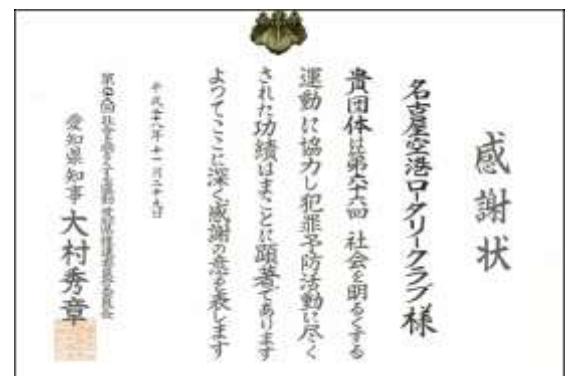 感謝状
名古屋空港ロータリークラブ様
貴団体は第六十六回 社会を明るくする
運動に協力し犯罪予防活動に尽く
された功績はまことに顕著であります
よってここに深く感謝の意を表します
平成二十八年十一月二十九日
社会を明るくする運動愛知県推進委員会
愛知県知事 大村秀章